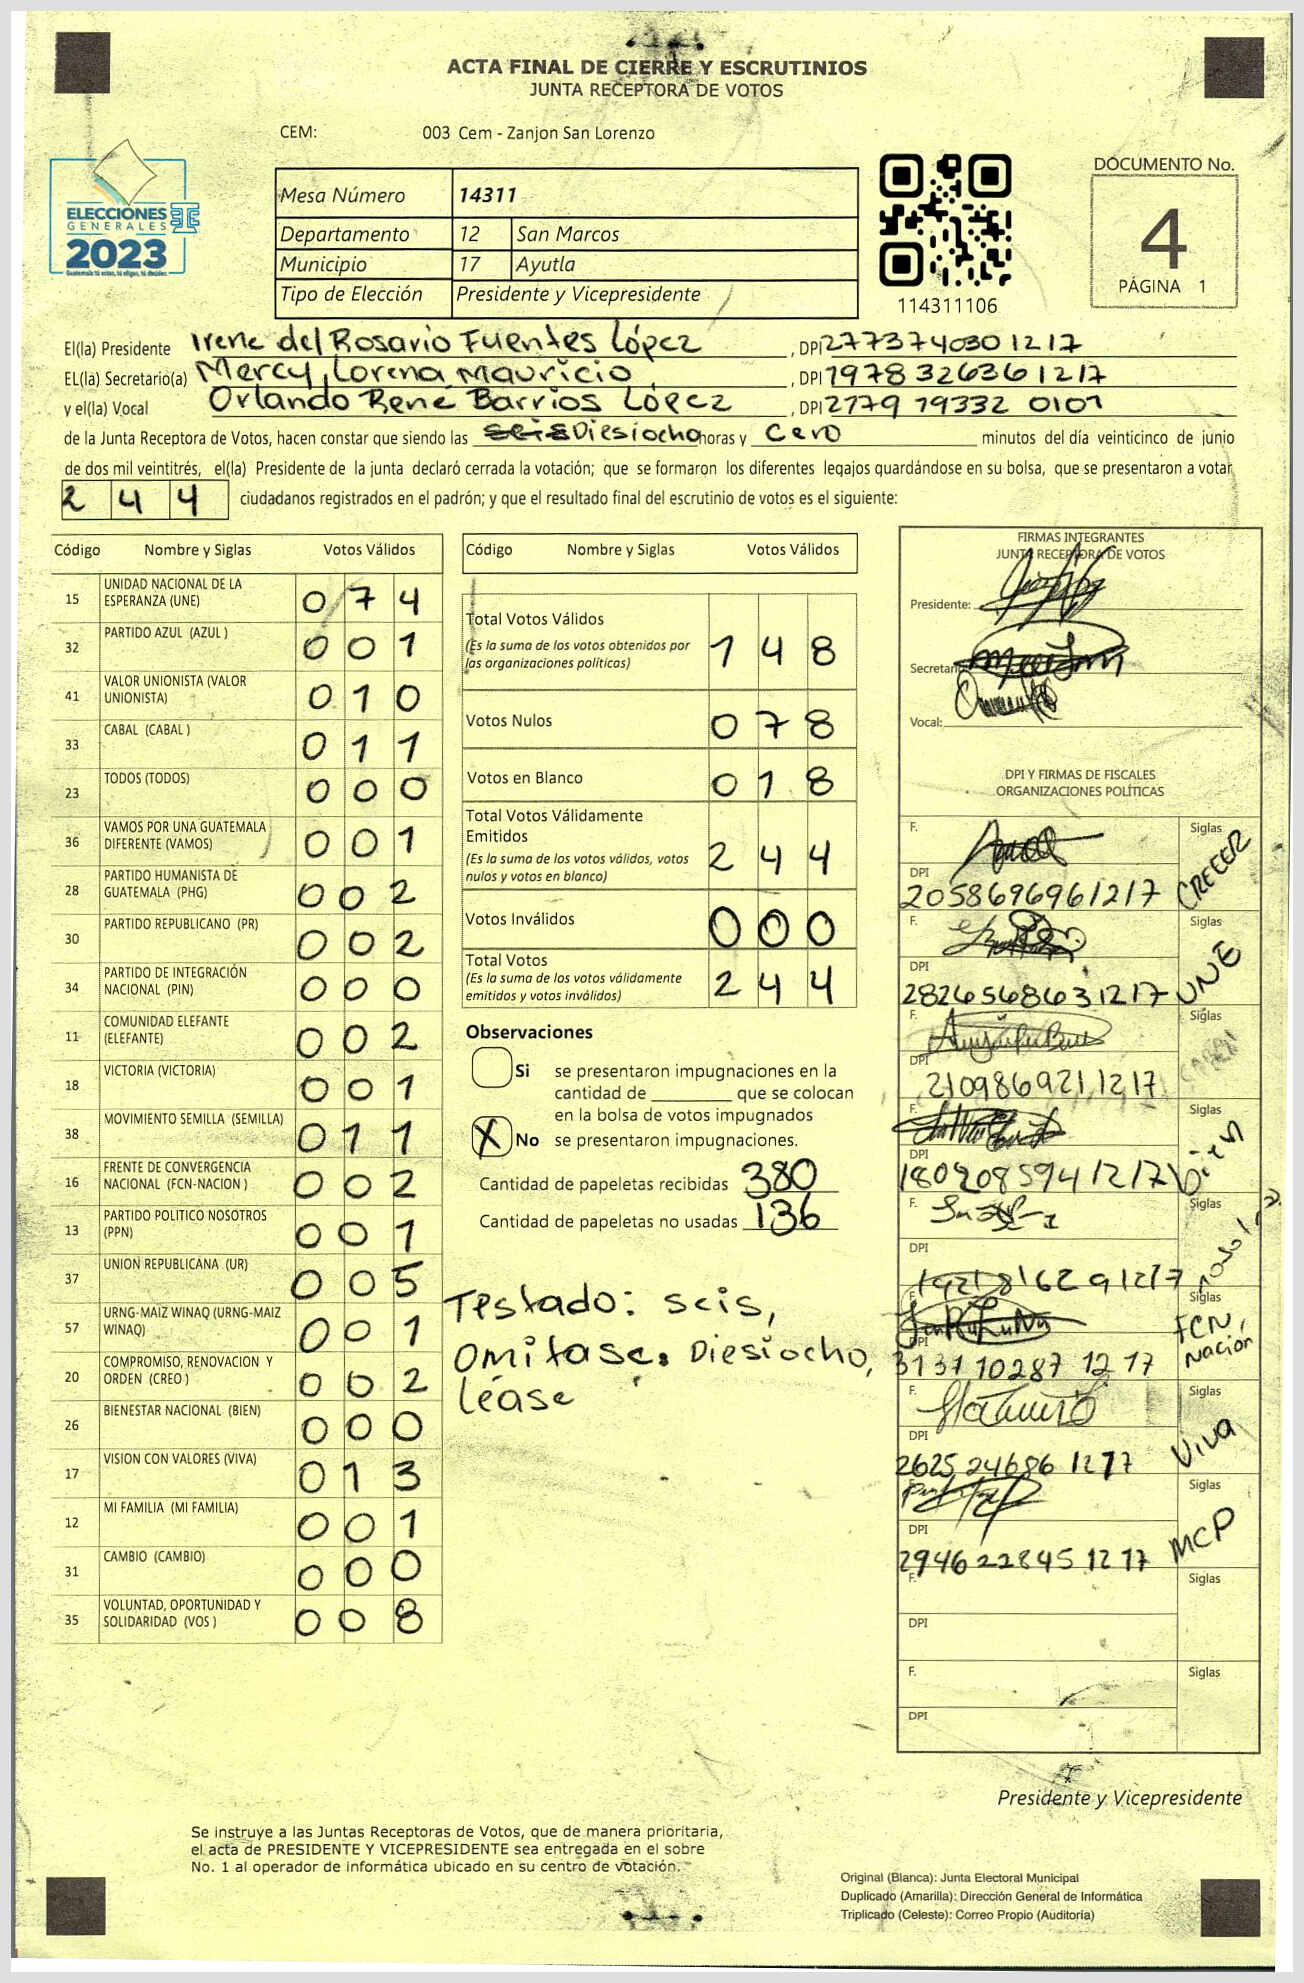 ACTA FINAL DE CIERRE Y ESCRUTINIOS
JUNTA RECEPTORA DE VOTOS
CEM: 003 Cem - Zanjon San Lorenzo
ELECCIONES
GENERALES
2023
Guatemala tú estas, tú eliges, tú decides
Mesa Número 14311
Departamento 12 San Marcos
Municipio 17 Ayutla
Tipo de Elección Presidente y Vicepresidente
114311106
DOCUMENTO No.
4
PÁGINA 1
El(la) Presidente Irene del Rosario Fuentes López , DPI 2773740301217
EL(la) Secretario(a) Mercy Lorena Mauricio , DPI 1978326361217
y el(la) Vocal Orlando René Barrios López , DPI 2779 79332 0101
de la Junta Receptora de Votos, hacen constar que siendo las seis Diesiocho horas y cero minutos del día veinticinco de junio
de dos mil veintitrés, el(la) Presidente de la junta declaró cerrada la votación; que se formaron los diferentes legajos guardándose en su bolsa, que se presentaron a votar
244 ciudadanos registrados en el padrón; y que el resultado final del escrutinio de votos es el siguiente:
Código Nombre y Siglas Votos Válidos
15 UNIDAD NACIONAL DE LA ESPERANZA (UNE) 074
32 PARTIDO AZUL (AZUL ) 001
41 VALOR UNIONISTA (VALOR UNIONISTA) 010
33 CABAL (CABAL ) 011
23 TODOS (TODOS) 000
36 VAMOS POR UNA GUATEMALA DIFERENTE (VAMOS) 001
28 PARTIDO HUMANISTA DE GUATEMALA (PHG) 002
30 PARTIDO REPUBLICANO (PR) 002
34 PARTIDO DE INTEGRACIÓN NACIONAL (PIN) 000
11 COMUNIDAD ELEFANTE (ELEFANTE) 002
18 VICTORIA (VICTORIA) 001
38 MOVIMIENTO SEMILLA (SEMILLA) 011
16 FRENTE DE CONVERGENCIA NACIONAL (FCN-NACION ) 002
13 PARTIDO POLITICO NOSOTROS (PPN) 001
37 UNION REPUBLICANA (UR) 005
57 URNG-MAIZ WINAQ (URNG-MAIZ WINAQ) 001
20 COMPROMISO, RENOVACION Y ORDEN (CREO ) 002
26 BIENESTAR NACIONAL (BIEN) 000
17 VISION CON VALORES (VIVA) 013
12 MI FAMILIA (MI FAMILIA) 001
31 CAMBIO (CAMBIO) 000
35 VOLUNTAD, OPORTUNIDAD Y SOLIDARIDAD (VOS ) 008
Código Nombre y Siglas Votos Válidos
Total Votos Válidos 148
(Es la suma de los votos obtenidos por
las organizaciones políticas)
Votos Nulos 078
Votos en Blanco 018
Total Votos Válidamente
Emitidos 244
(Es la suma de los votos válidos, votos
nulos y votos en blanco)
Votos Inválidos 000
Total Votos 244
(Es la suma de los votos válidamente
emitidos y votos inválidos)
Observaciones
Si se presentaron impugnaciones en la
cantidad de ________ que se colocan
en la bolsa de votos impugnados
X No se presentaron impugnaciones.
Cantidad de papeletas recibidas 380
Cantidad de papeletas no usadas 136
Testado: seis,
Omitase. Diesiocho,
Léase
FIRMAS INTEGRANTES
JUNTA RECEPTORA DE VOTOS
Presidente:
Secretario
Vocal:
DPI Y FIRMAS DE FISCALES
ORGANIZACIONES POLÍTICAS
F. Siglas
DPI 2058696961217 CREEER
F. Siglas
DPI 2826568631217 UNE
F. Siglas
DPI 2109869211217
F. Siglas
DPI 1802085941217 Bien
F. Siglas
DPI 1921816291217
F. Siglas
DPI 3131 10287 12 17 FCN, Nación
F. Siglas
DPI 2625 24686 1217 Viva
F. Siglas
DPI 2946 22845 12 17 MCP
F. Siglas
DPI
F. Siglas
DPI
Presidente y Vicepresidente
Se instruye a las Juntas Receptoras de Votos, que de manera prioritaria,
el acta de PRESIDENTE Y VICEPRESIDENTE sea entregada en el sobre
No. 1 al operador de informática ubicado en su centro de votación.
Original (Blanca): Junta Electoral Municipal
Duplicado (Amarilla): Dirección General de Informática
Triplicado (Celeste): Correo Propio (Auditoría)